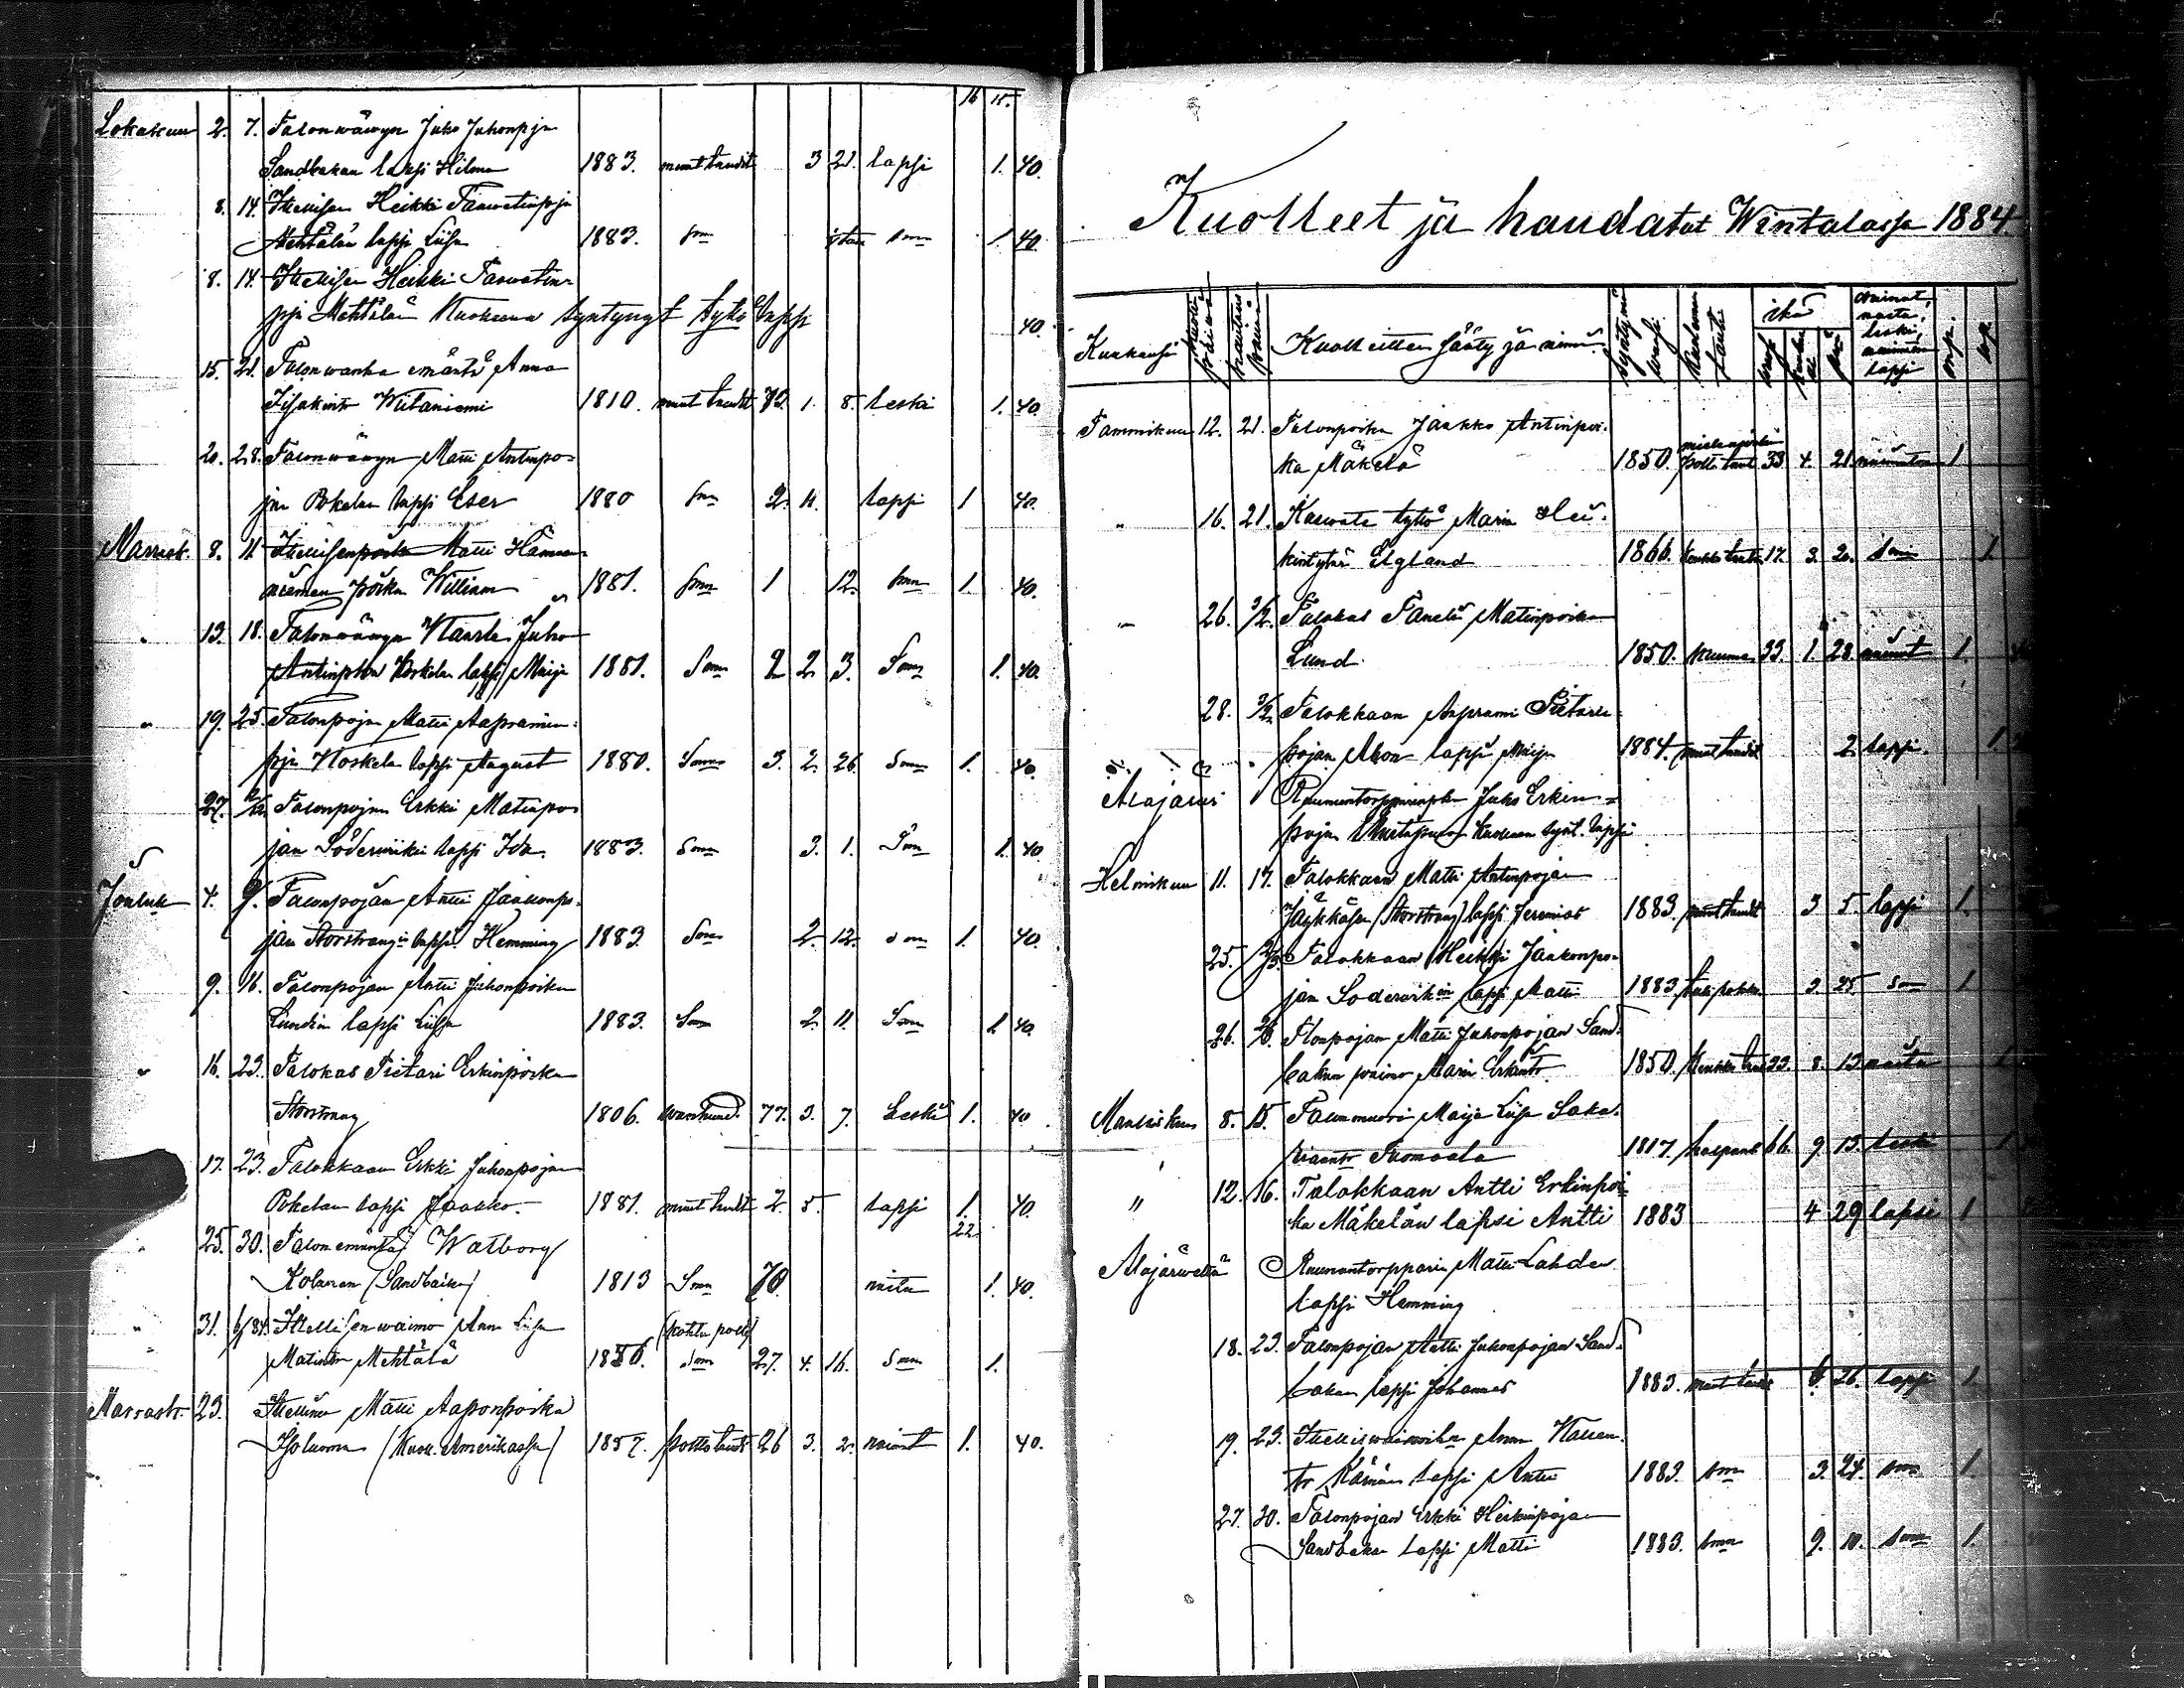 16 15.
Lokakuu 2. 7. Talonwäwyn Juho Juhonpja
Sandbakan lapsi Hilma 1883. muut taudit 3 21. lapsi 1. 40.
8. 14. Itsellisen Heikki Taawetinpja
Mehtälän lapsi Liisa 1883. Sma Sma 1. 40.
8. 14. Itsellisen Heikki Taawetin-
pja Mehtälän Kuolleena syntynyt tyttö lapsi 40.
15. 21. Talon wanha emäntä Anna
Wiitaniemi 1810. muut taudit 73. 1. 8. leski 1. 40.
20. 28. Talonwäwyn Matti Antinpo-
jan Pokelan lapsi Eser 1880 Sma 2. 11. lapsi 1 40.
Marrask. 8. 11. Matti
poika William 1881. Sma 1 12. Sma 1. 40.
" 13. 18. Talonwäwyn Kaarle Juho
Antinpjan Koskelan lapsi Maija 1881. Sma 2 2 3. Sma 1. 40.
" 19. 25. Talonpojan Matti Aapramin-
pja Koskela lapsi August 1880. Sma 3. 2. 26. Sma 1. 40.
27. 2/12 Talonpojan Erkki Matinpo-
jan Söderwikin lapsi Ida. 1883. Sma 3. 1. Sma 1. 40.
Jouluk 4. 9. Talonpojan Antti Jaakonpo-
jan Storstrang'in lapsi Hemming 1883. Sma 2. 12. Sma 1. 40.
9. 16. Talonpojan Antti Juhonpoika
Lundin lapsi Liisa 1883. Sma 2. 11. Sma 1 40.
" 16. 23. Talokas Pietari Erkinpoika
Storstrang 1806. 77. 3. 7. Leski 1. 40
17. 23. Talokkaan Erkki Juhonpojan
Pokelan lapsi Jaakko. 1881. muut taudit 2. 5. lapsi 1. 40.
22.
" 25. 30. Talon emäntä Walborg
Kolanen (Sandbacka) 1813 Sma 70. naitu 1. 40.
" 31. 6/84. Itsellisen waimo Anna Liisa (kohtu polte)
Matintr Mehtälä 1856. Sma 27. 4. 16. Sma 1.
Marrask. 23. Itsellinen Matti Aaponpoika
Isoluoma (Kuoll. Amerikassa) 1857. poltto taudit 26 3. 2. nainut 1. 40.
Kuolleet ja haudatut Wintalassa 1884.
Kuukausi kuolin päiwä hautaus päiwä Kuolleitten sääty ja nimi. syntymä wuosi kuoleman tauti ikä wuosi kuukausi päiwä nainut, naitu, leski, naimaton lapsi mp. wp.
Tammikuu 12. 21. Talonpoika Jaakko Antinpoi-
ka Mäkelä 1850. poltt taut 33 4. 21. naimaton 1
" 16. 21. Kaswate tyttö Maria Hei-
kintytär Elgland 1866. taut 17. 3. 20. Sma 1.
" 26. 3/2. Talokas Matinpoika
Lund. 1850. 33. 1. 28. nainut 1.
28. 3/2. Talokkaan Aaprami Pietarin-
pojan Ahon lapsi Maija 1884. muut taudit 2. lapsi. 1.
Alajärwi Ruununtorpparinpjan Juho Erkin-
pojan Mustapuron kuolleen synt. lapsi
Helmikuu 11. 17. Talokkaan Matti Antinpojan
Jäykkäsen (Storstrang) lapsi Jeremias 1883. muut taudit 3 5. lapsi 1.
25. 2/3. Talokkaan Heikki Jaakonpo-
jan Söderwikin lapsi Matti 1883. 3. 25. Sma 1
26. 2/3. Tlonpojan Matti Juhonpojan Sand-
bakan waimo Maria Erkintr. 1850. 33. 8. 13. naitu 1
Maaliskuu 8. 15. Talonmuori Maija Liisa Saka-
riaantr Tuomaala 1817. 66. 9. 13. leski 1
" 12. 16. Talokkaan Antti Erkinpoi-
ka Mäkelän lapsi Antti 1883 4 29 lapsi 1
Alajärweltä Ruununtorpparin Matti Lahden
lapsi Hemming
18. 23. Talonpojan Antti Juhonpojan Sand-
bakan lapsi Johannes 1883. muut taudit 6. 26. lapsi 1.
19. 23. Anna
lapsi Antti 1883. Sma 3. 24. Sma 1.
27. 30. Talonpojan Erkki Heikinpojan
Sandbakan lapsi Matti 1883. Sma 9. 10. Sma 1.